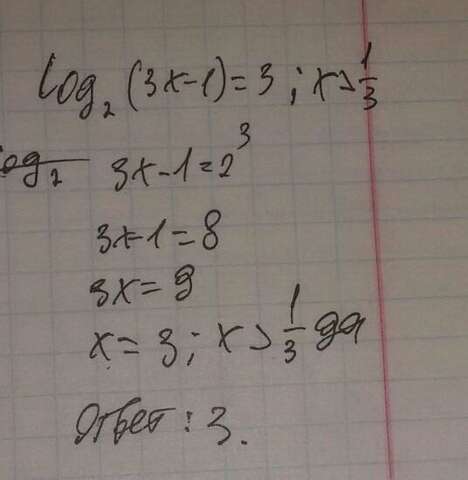 log₂ (3x-1) = 3 ; x > 1/3
log₂ 3x-1 = 2³
3x-1 = 8
3x = 9
x = 3 ; x > 1/3 да
Ответ : 3.